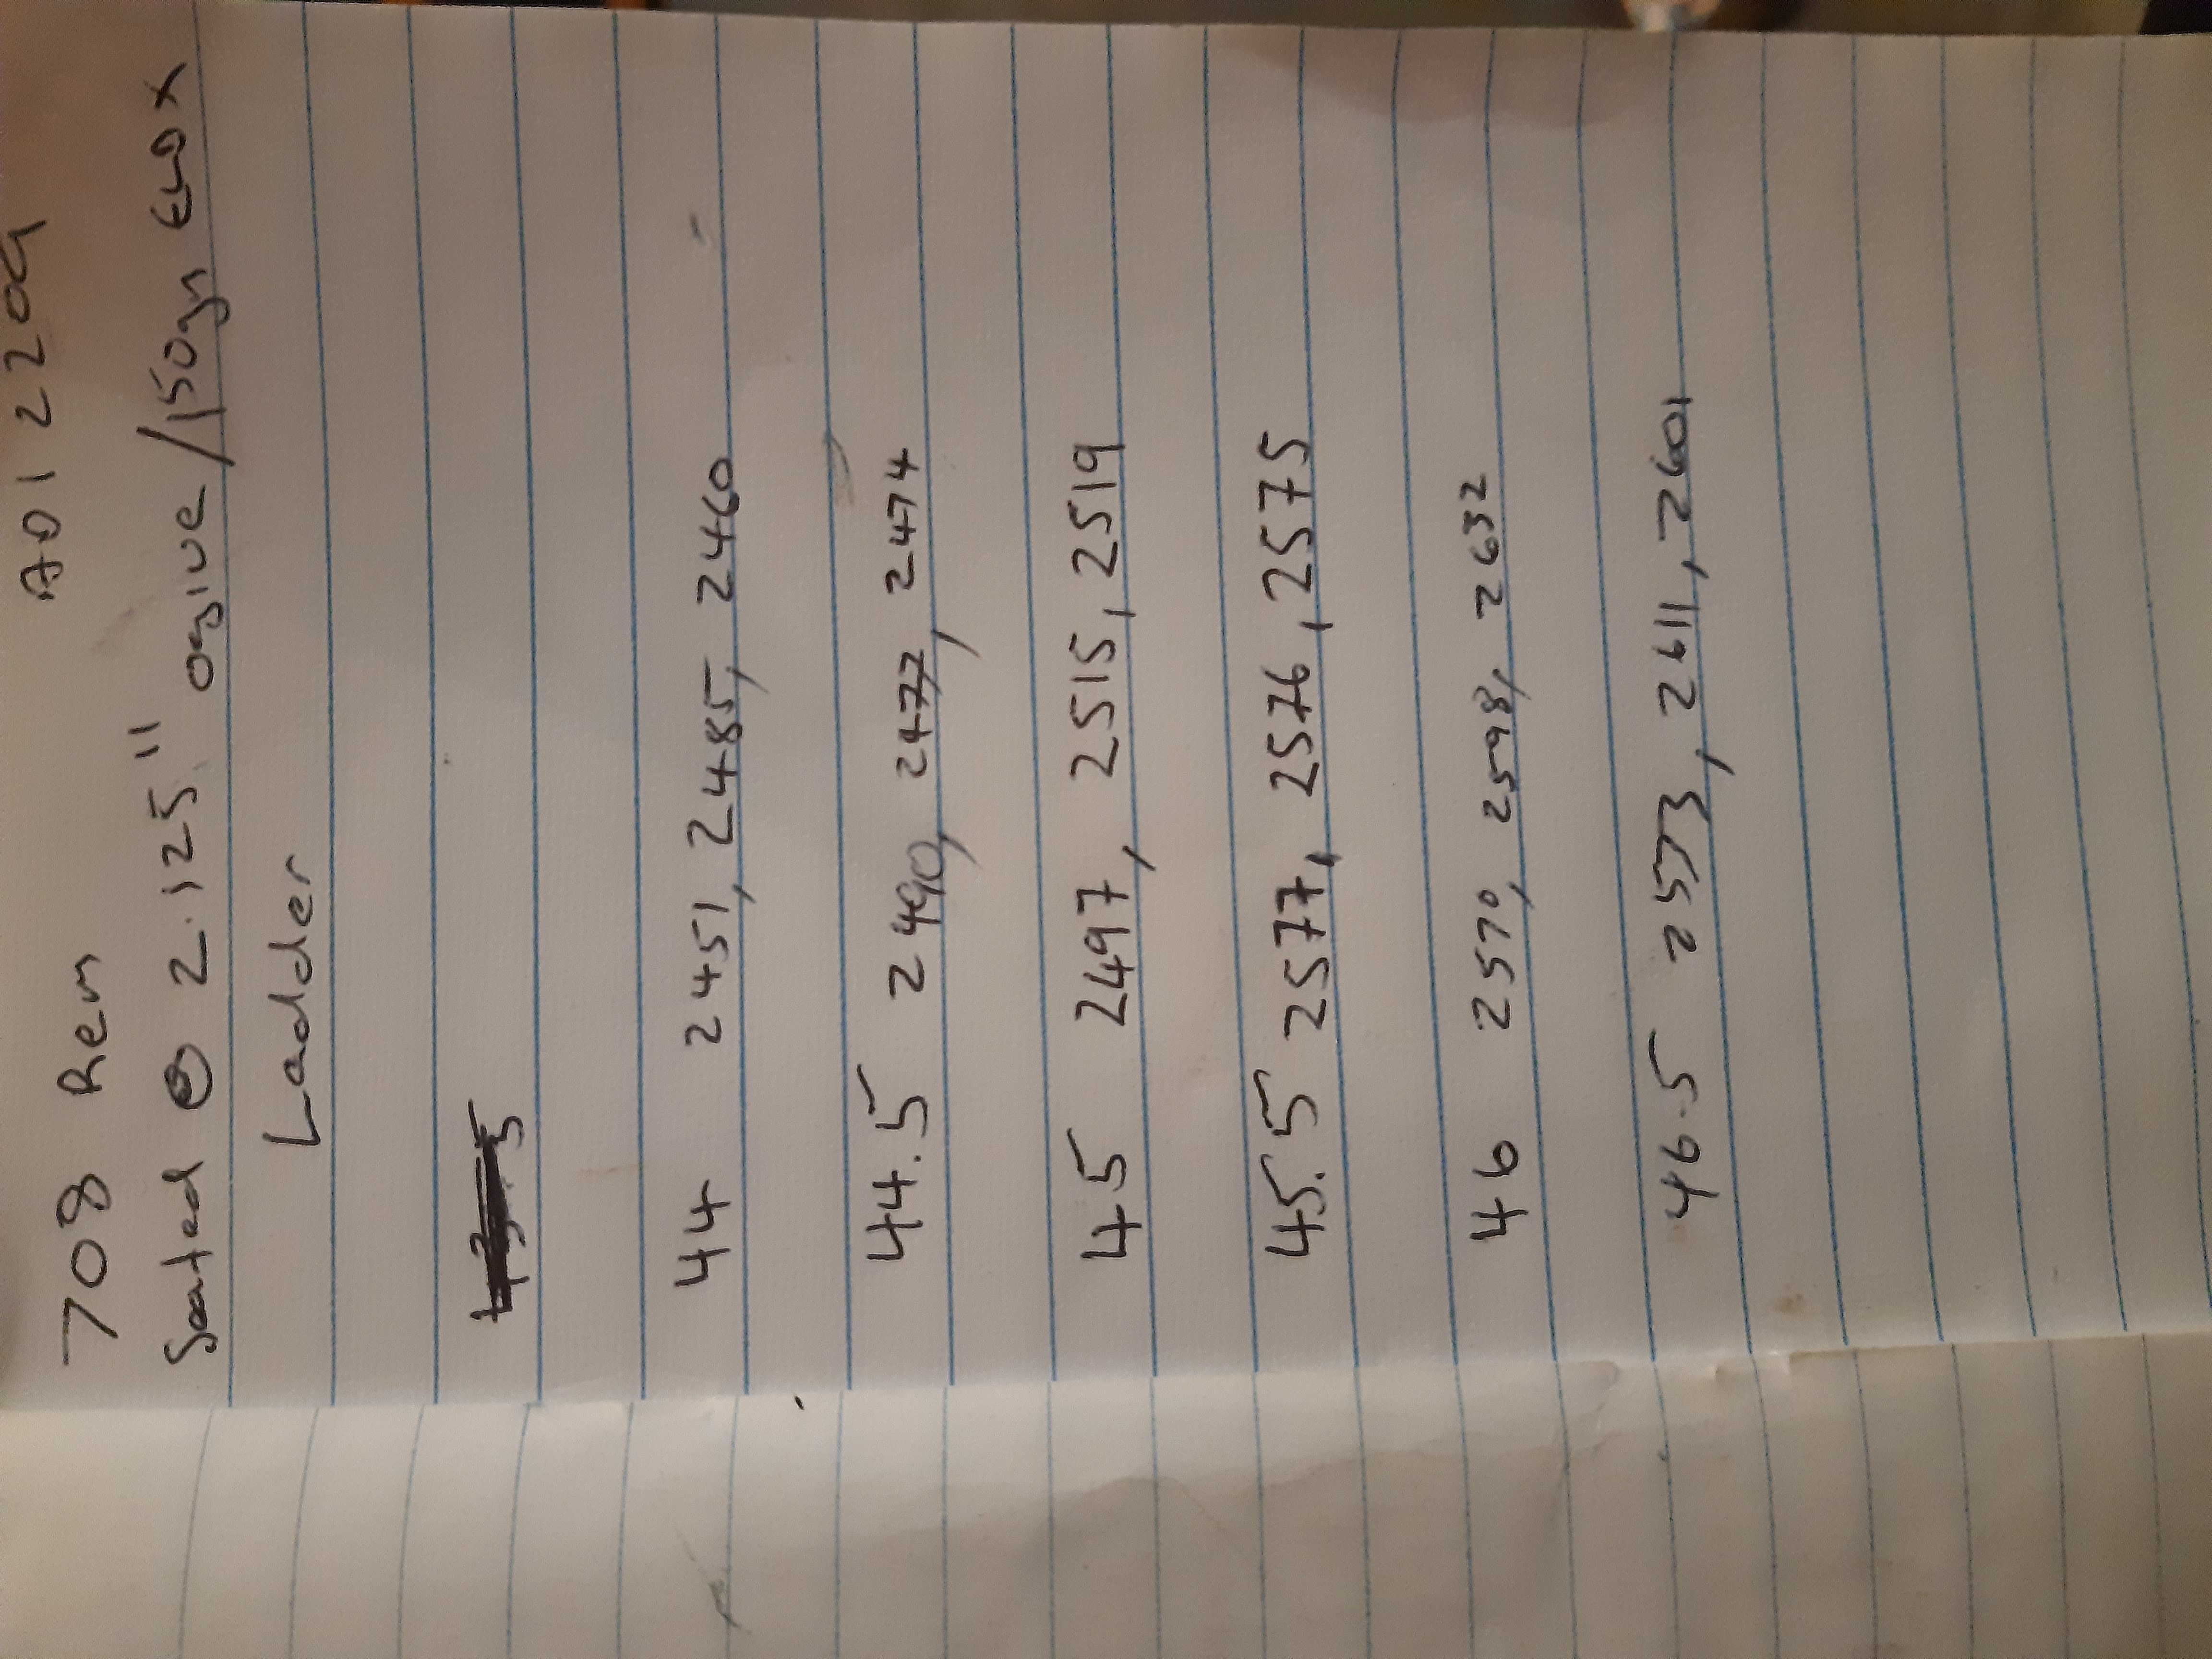 ADI 2209
708 Rem
Seated @ 2.125" ogive/150gn ELDX
Ladder
43.5
44 2451, 2485, 2460
44.5 2490, 2477, 2474
45 2497, 2515, 2519
45.5 2577, 2576, 2575
46 2570, 2598, 2632
46.5 2573, 2611, 2601